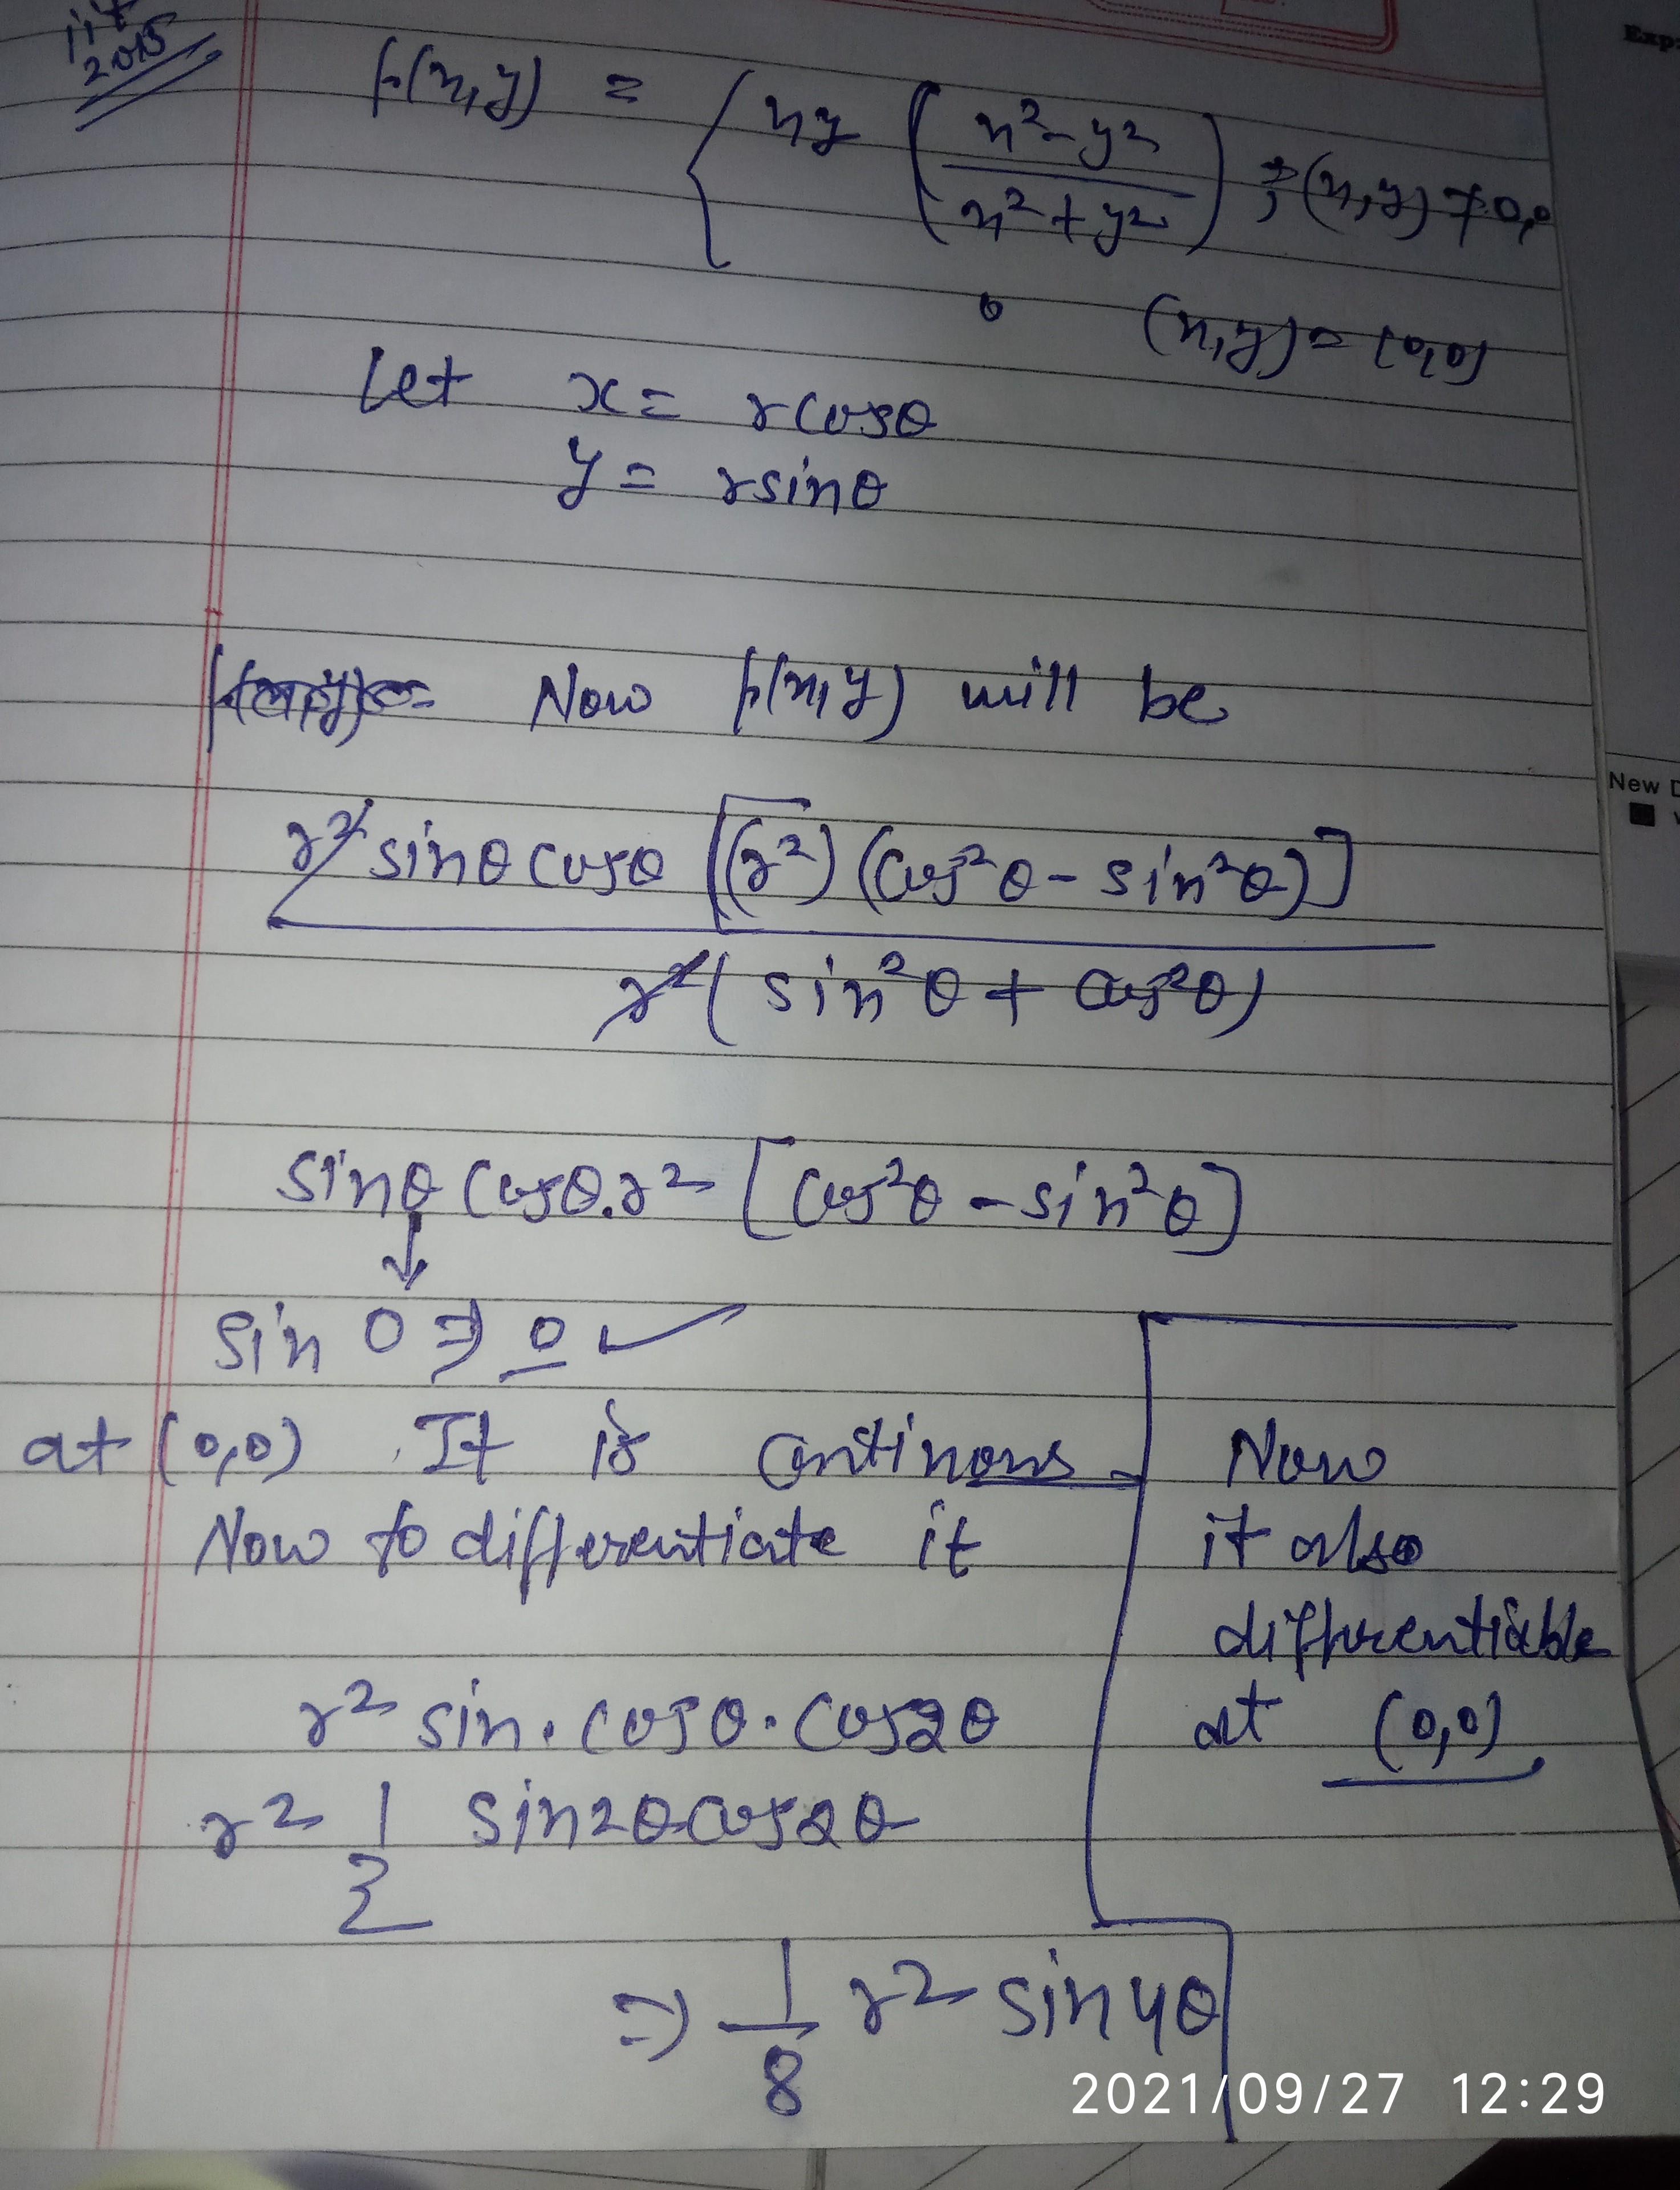 iit
2015
f(x,y) = { xy ( x²-y² / x²+y² ) ; (x,y) ≠ 0,0
0 (x,y) = (0,0)
Let x = rcosθ
y = rsinθ
Now f(x,y) will be
r² sinθ cosθ [(r²) (cos²θ - sin²θ)]
r² ( sin²θ + cos²θ)
sinθ cosθ.r² [cos²θ - sin²θ]
↓
sin 0 ⇒ 0 ✓
at (0,0) It is continous
Now to differentiate it
r² sin. cosθ. cos2θ
r² 1/2 sin2θcos2θ
⇒ 1/8 r² sin4θ
Now
it also
differentiable
at (0,0)
New D
Exp
2021/09/27 12:29